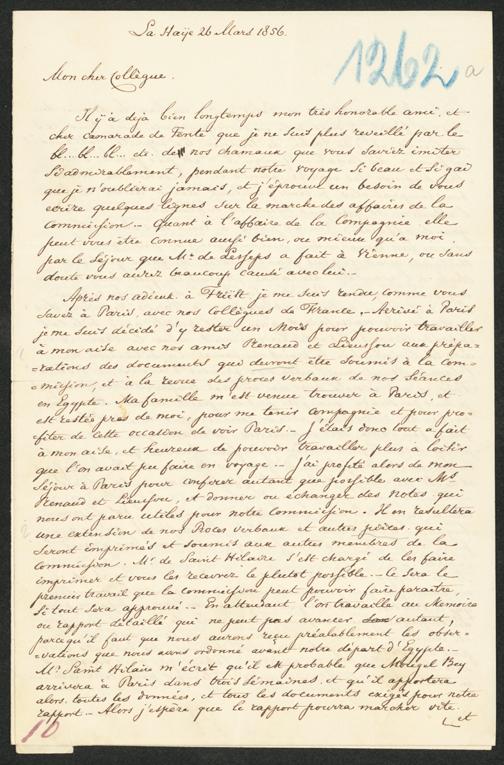 La Haÿe 26 Mars 1856.
1262 a
Mon cher Collègue.
Il y'a déjà bien longtemps mon très honorable ami, et
cher camarade de Tente que je ne suis plus reveillé par le
bl... bl... bl... de nos chamaux que vous saviez imiter
si admirablement, pendant notre voyage si beau et si gai
que je n'oublirai jamais, et j'éprouve un besoin de vous
ecrire quelques lignes sur la marche des affaires de la
commission.- Quant à l'affaire de la Compagnie elle
peut vous être connue aussi bien, ou mieux qu'a moi,
par le séjour que Mr. de Lesseps a fait à Vienne, ou sans
doute vous aurez beaucoup causé avec lui.-
Après nos adieux à Triëst, je me suis rendu, comme vous
savez à Paris, avec nos Collègues de France.- Arrivé à Paris
je me suis décidé d'y rester un Mois pour pouvoir travailler
à mon aise avec nos amis Renaud et Lieussou aux prépa-
-rations des documents qui devront être soumis à la com-
-mission, et à la revue des procès verbaux de nos Séances
en Egypte. Ma famille m'est venue trouver à Paris, et
est restée près de moi, pour me tenir compagnie et pour pro-
fiter de cette occasion de voir Paris.- J'étais donc tout a fait
à mon aise, et heureux de pouvoir travailler plus a loisir
que l'on avait pu faire en voyage.- j'ai profité alors de mon
Séjour à Paris pour conferer autant que possible avec Mrs.
Renaud et Lieussou, et donner ou échanger des Notes qui
nous ont paru utiles pour notre Commission. Il en resultera
une extension de nos Proces verbaux et autres pièces qui
seront imprimés et soumis aux autres membres de la
Commission. Mr. de Saint Hilaire s'est chargé de les faire
imprimer et vous les recevrez le plutot possible.- Ce sera le
premier travail que la commission peut pouvoir faire paraitre,
Si tout sera approuvé.- En attendant l'on travaille au Memoire
ou rapport detaillé qui ne peut pas avancer autant,
parcequ'il faut que nous aurons reçu préalablement les obser-
-vations que nous avons ordonné avant notre départ d'Egypte.-
Mr. Saint Hilaire m'écrit qu'il est probable que Mougel Bey
arrivera à Paris dans trois Semaines, et qu'il apportera
alors toutes les données, et tous les documents exigés pour notre
rapport.- Alors j'espère que le rapport pourra marcher vite.
et
10